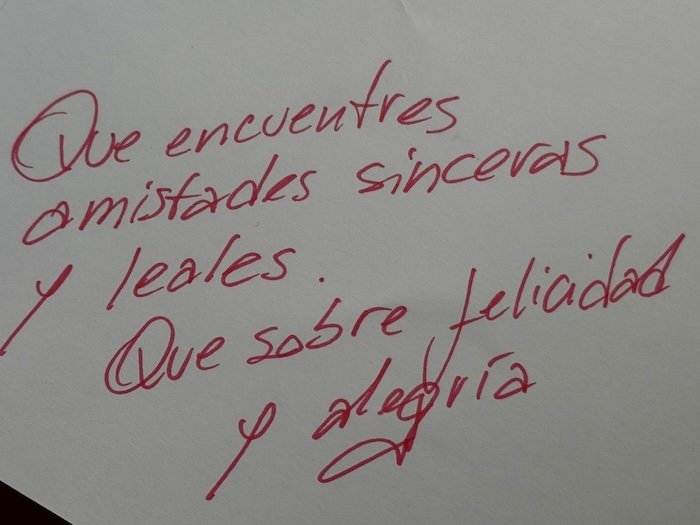 Que encuentres
amistades sinceras
y leales.
Que sobre felicidad
y alegría